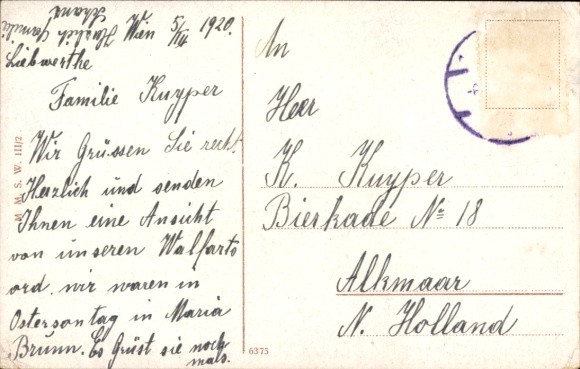 Wien 5/IV 1920.
Liebwerthe
Familie Kuyper
Wir Grüssen Sie recht
Herzlich und senden
Ihnen eine Ansicht
von unseren Walfarts
ord. wir waren in
Ostersontag in Maria
Brunn. Es Grüst sie noch
mals.
Herzlich Familie
M. M. S. W. III/2
6375
An
Heer
K. Kuyper
Bierkade No 18
Alkmaar
N. Holland